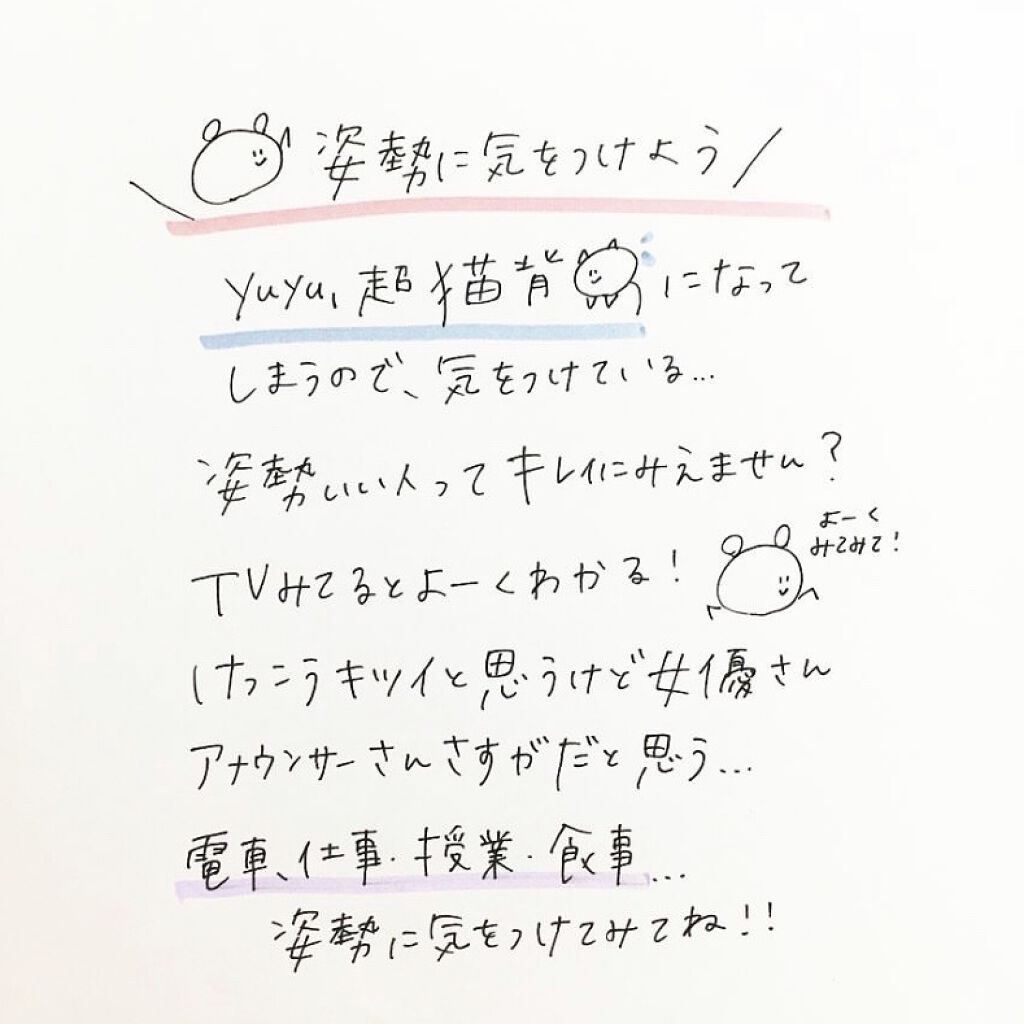 \ 姿勢に気をつけよう /
yuyu、超猫背になって
しまうので、気をつけている...
姿勢いい人ってキレイにみえません?
よーく
みてみて!
TVみてるとよーくわかる!
けっこうキツイと思うけど女優さん
アナウンサーさんさすがだと思う...
電車、仕事・授業・食事...
姿勢に気をつけてみてね!!